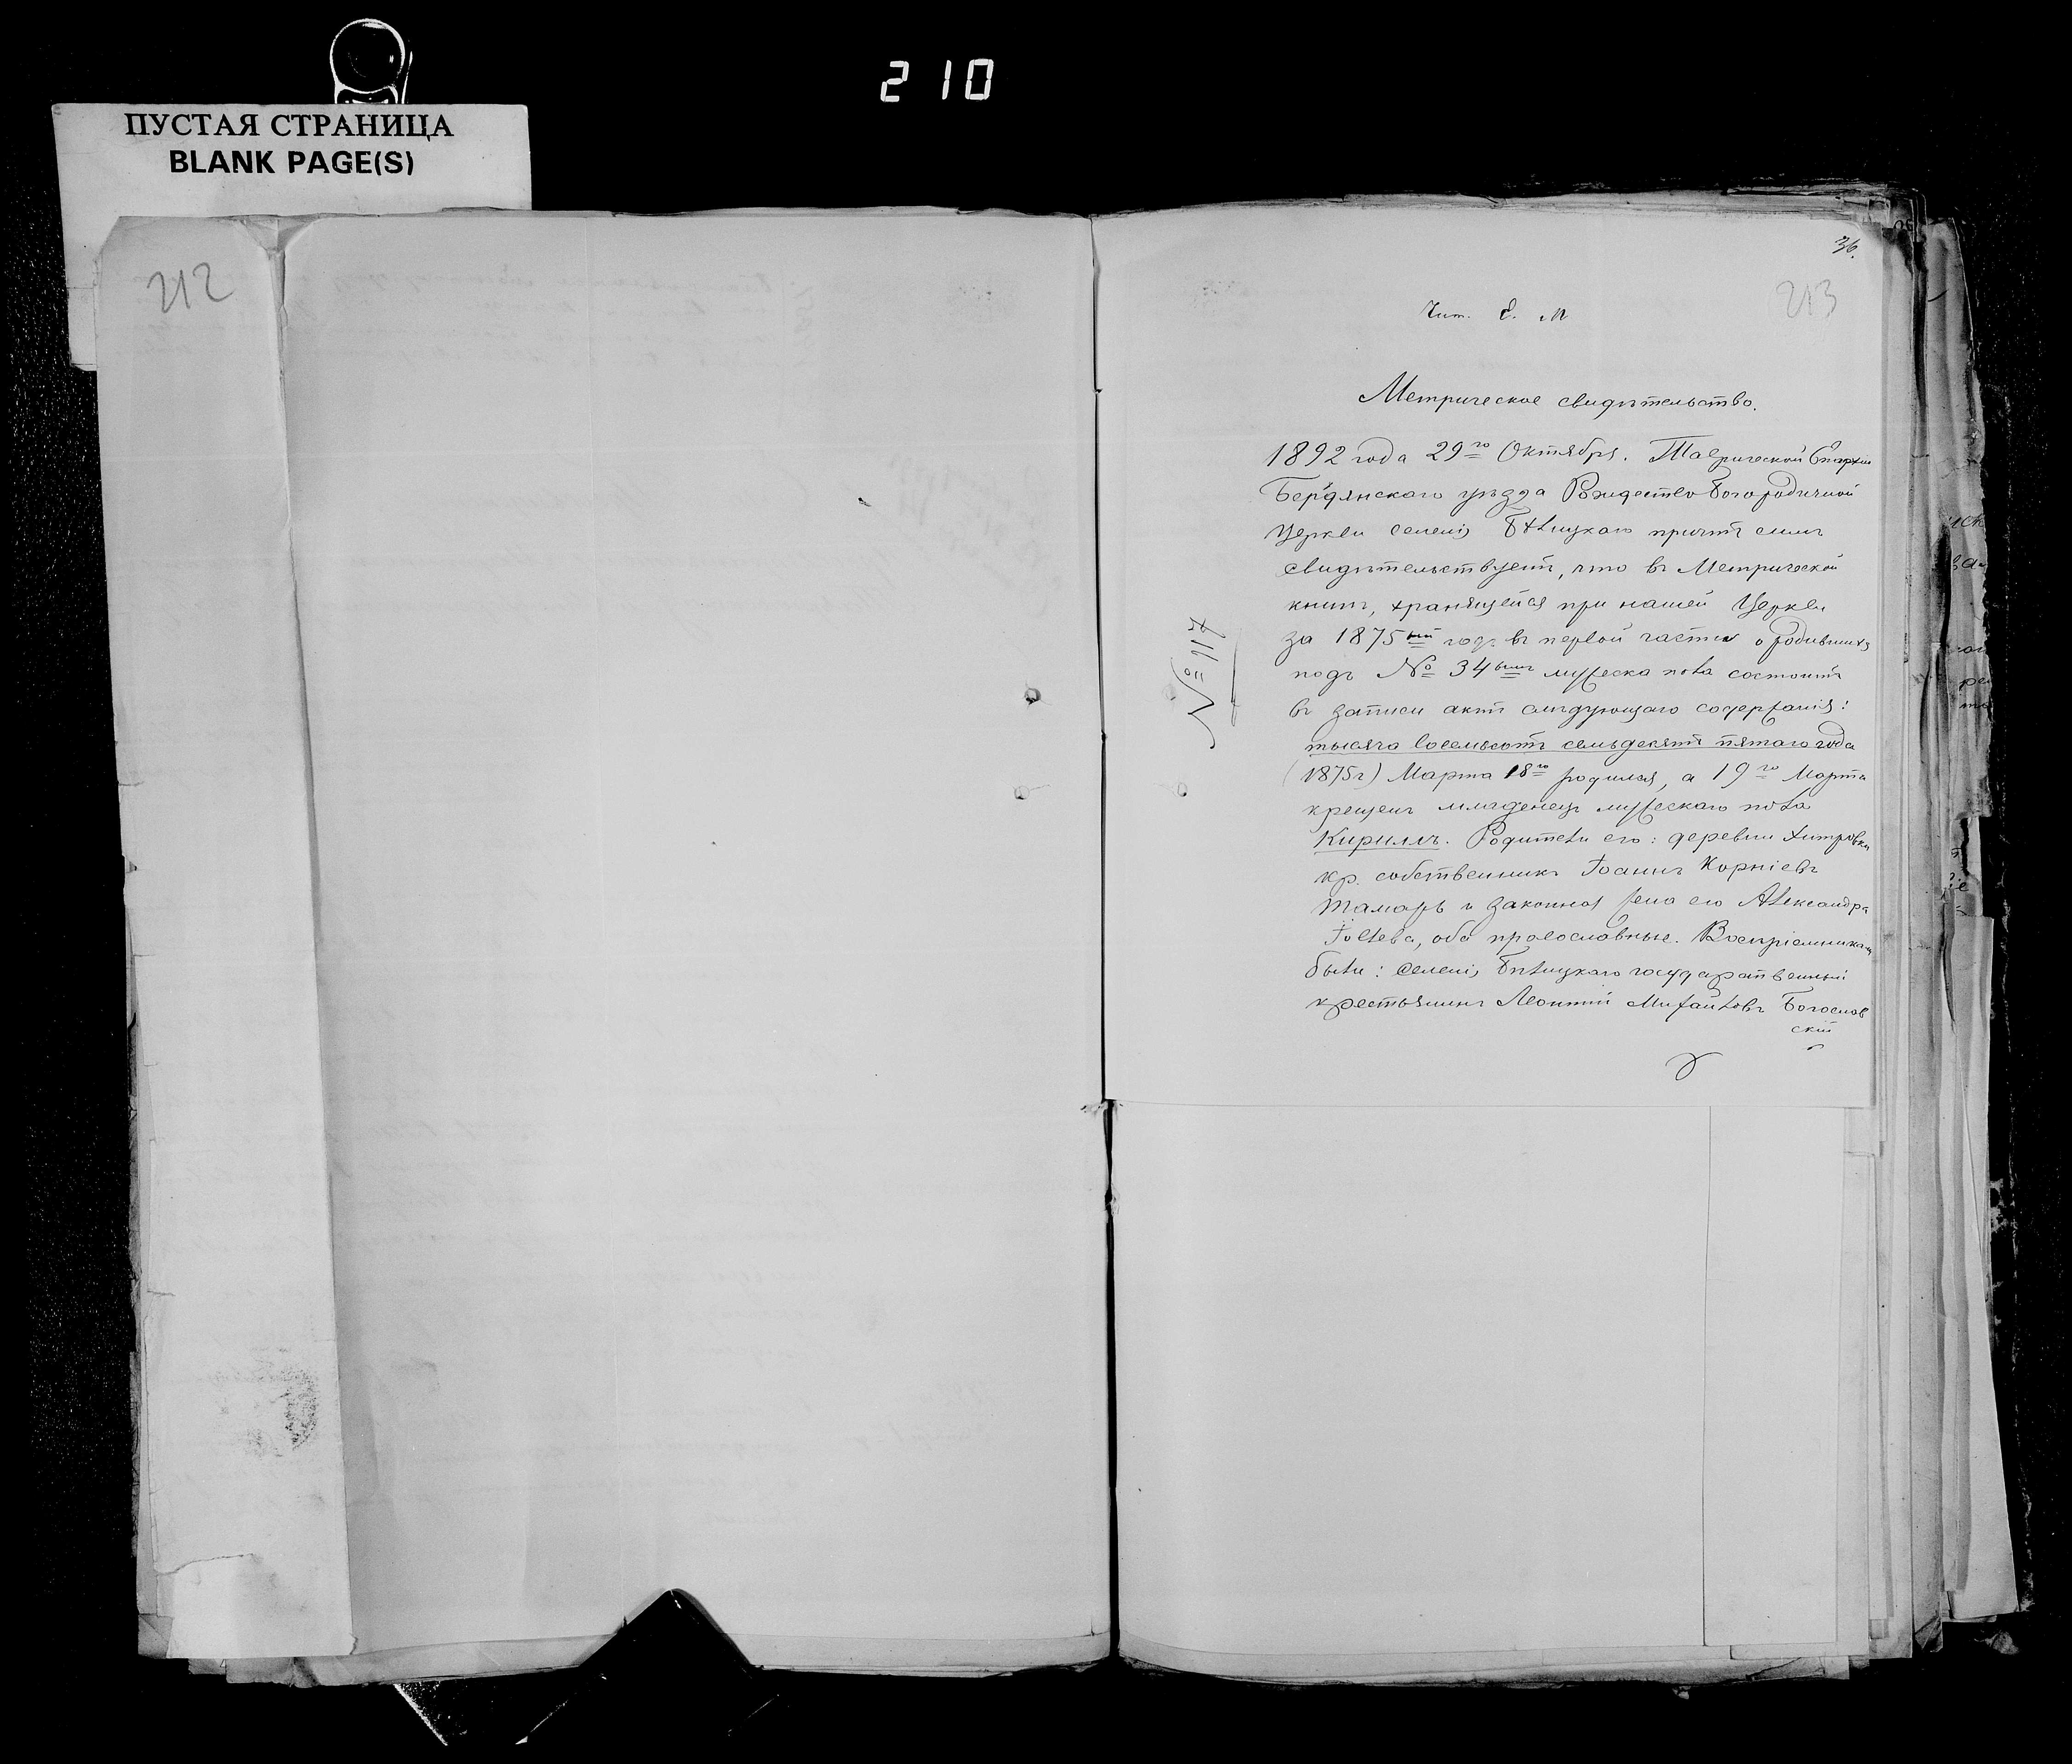 210
ПУСТАЯ СТРАНИЦА
BLANK PAGE(S)
212
36.
213
Е. М
Метрическое свидѣтельство.
1892 года 29го Октября. Таврической Епархіи
Бердянскаго уѣзда Рождество Богородичной
Церкви селенія Бѣлицкаго причтъ симъ
свидѣтельствуетъ, что въ Метрической
книгѣ, хранящейся при нашей Церкви
за 1875ый годъ въ первой части о родившихъ
подъ № 34ымъ мужеска пола состоитъ
въ записи актъ слѣдующаго содержанія:
тысяча восемьсотъ семьдесятъ пятаго года
(1875г) Марта 18го родился, а 19го Марта
крещенъ младенецъ мужескаго пола
Кириллъ. Родители его: деревни Хитровки
кр. собственникъ Іоаннъ Корніевъ
Тамарь и законная жена его Александра
оба православные. Воспріемниками
были: селенія Бѣлицкаго государственный
крестьянинъ Леонтій Михайловъ Богослов
скій
№ 117